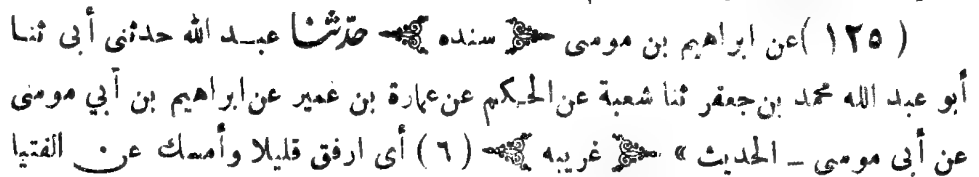 (١٢٥) عن ابراهيم بن موسى ﴿ سنده ﴾ حدّثنا عبد الله حدثنى أبى ثنا
أبو عبد الله محمد بن جعفر ثنا شعبة عن الحكم عن عمارة بن عمير عن ابراهيم بن أبي موسى
عن أبى موسى ــ الحديث » ﴿ غريبه ﴾ (٦) أى ارفق قليلا وأمسك عن الفتيا